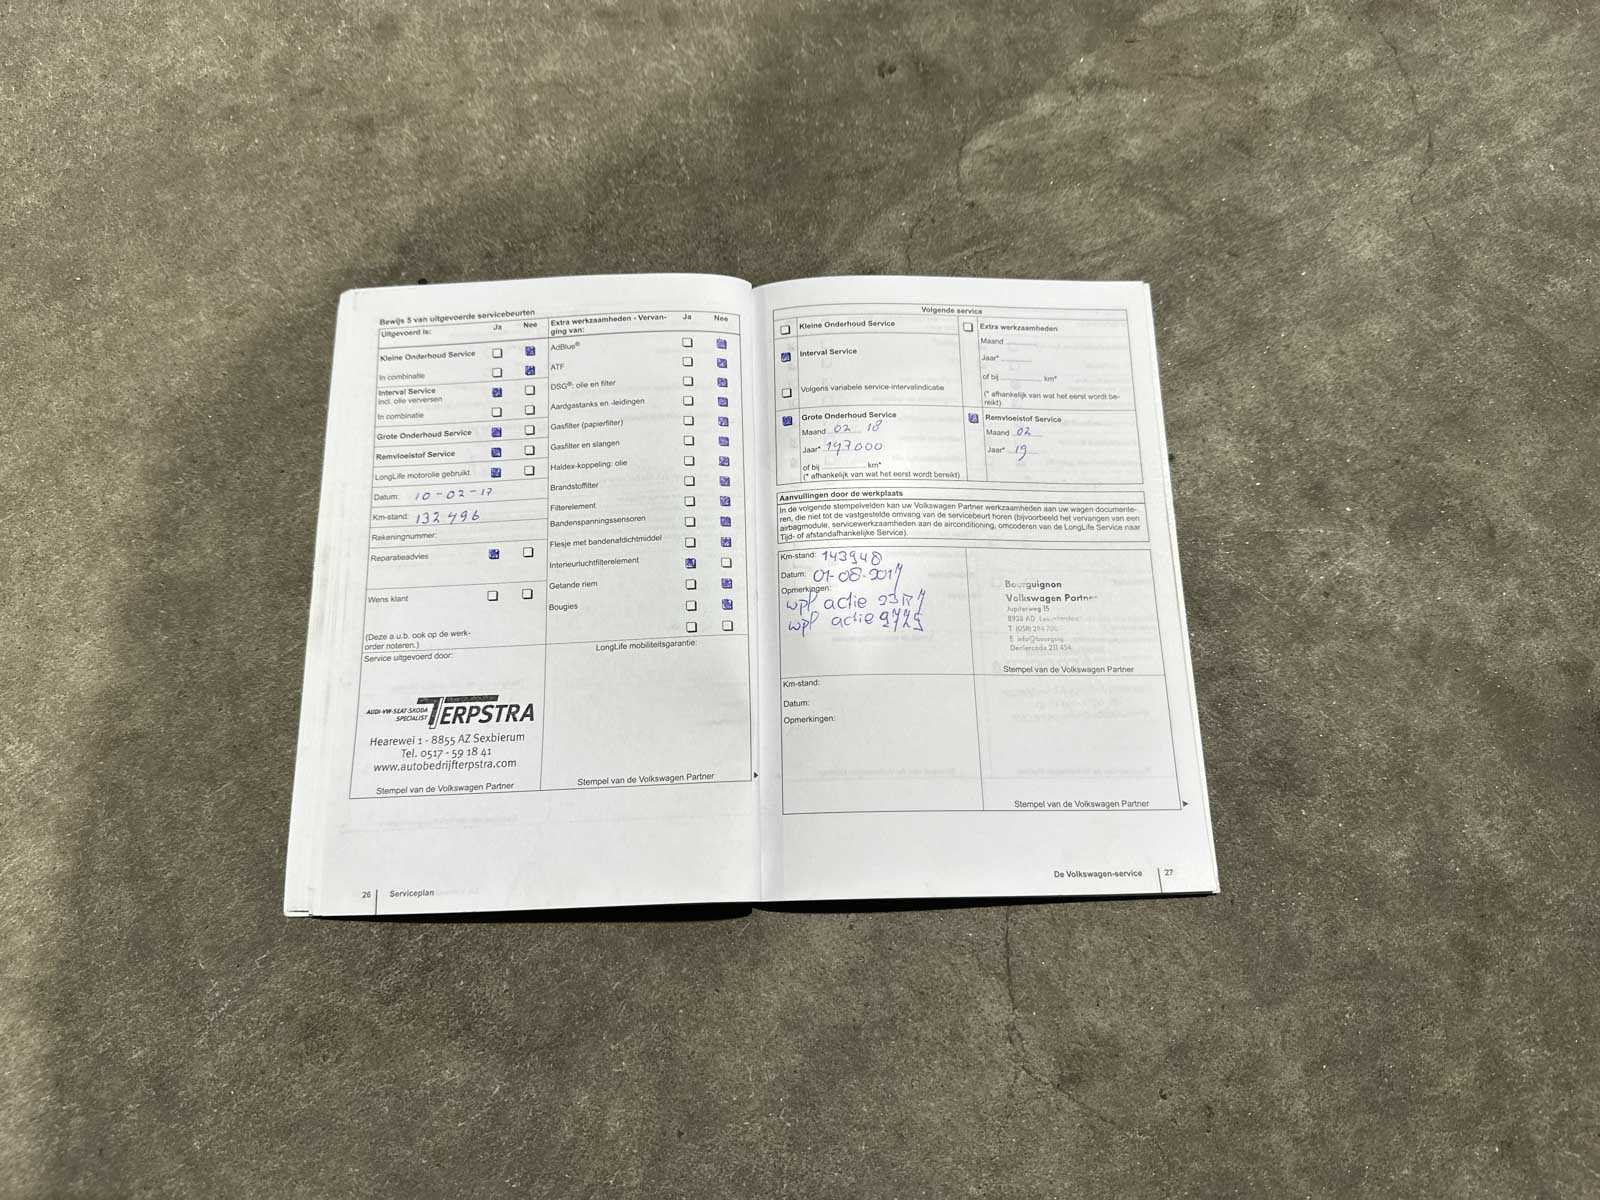 Bewijs 5 van uitgevoerde servicebeurten
Uitgevoerd is: Ja Nee
Kleine Onderhoud Service
In combinatie
Interval Service
incl. olie verversen
In combinatie
Grote Onderhoud Service
Remvloeistof Service
LongLife motorolie gebruikt
Datum: 10-02-17
Km-stand: 132 496
Rekeningnummer:
Reparatieadvies
Wens klant
(Deze a.u.b. ook op de werk-
order noteren.)
Service uitgevoerd door:
AUDI-VW-SEAT-SKODA
SPECIALIST TERPSTRA
Hearewei 1 - 8855 AZ Sexbierum
Tel. 0517 - 59 18 41
www.autobedrijfterpstra.com
Stempel van de Volkswagen Partner
Extra werkzaamheden - Vervan-
ging van: Ja Nee
AdBlue®
ATF
DSG®: olie en filter
Aardgastanks en -leidingen
Gasfilter (papierfilter)
Gasfilter en slangen
Haldex-koppeling: olie
Brandstoffilter
Filterelement
Bandenspanningssensoren
Flesje met bandenafdichtmiddel
Interieurluchtfilterelement
Getande riem
Bougies
LongLife mobiliteitsgarantie:
Stempel van de Volkswagen Partner
26 Serviceplan
Volgende service
Kleine Onderhoud Service
Interval Service
Volgens variabele service-intervalindicatie
Extra werkzaamheden
Maand
Jaar*
of bij km*
(* afhankelijk van wat het eerst wordt be-
reikt)
Grote Onderhoud Service
Maand 02 18
Jaar* 147000
of bij km*
(* afhankelijk van wat het eerst wordt bereikt)
Remvloeistof Service
Maand 02
Jaar* 19
Aanvullingen door de werkplaats
In de volgende stempelvelden kan uw Volkswagen Partner werkzaamheden aan uw wagen documente-
ren, die niet tot de vastgestelde omvang van de servicebeurt horen (bijvoorbeeld het vervangen van een
airbagmodule, servicewerkzaamheden aan de airconditioning, omcoderen van de LongLife Service naar
Tijd- of afstandafhankelijke Service).
Km-stand: 143948
Datum: 01-08-2017
Opmerkingen:
wpl actie 23R7
wpl actie
Bourguignon
Volkswagen Partner
Jupiterweg 15
8938 AD Leeuwarden
T (058)
E info@bourguig
Dealercode 211 454
Stempel van de Volkswagen Partner
Km-stand:
Datum:
Opmerkingen:
Stempel van de Volkswagen Partner
De Volkswagen-service 27